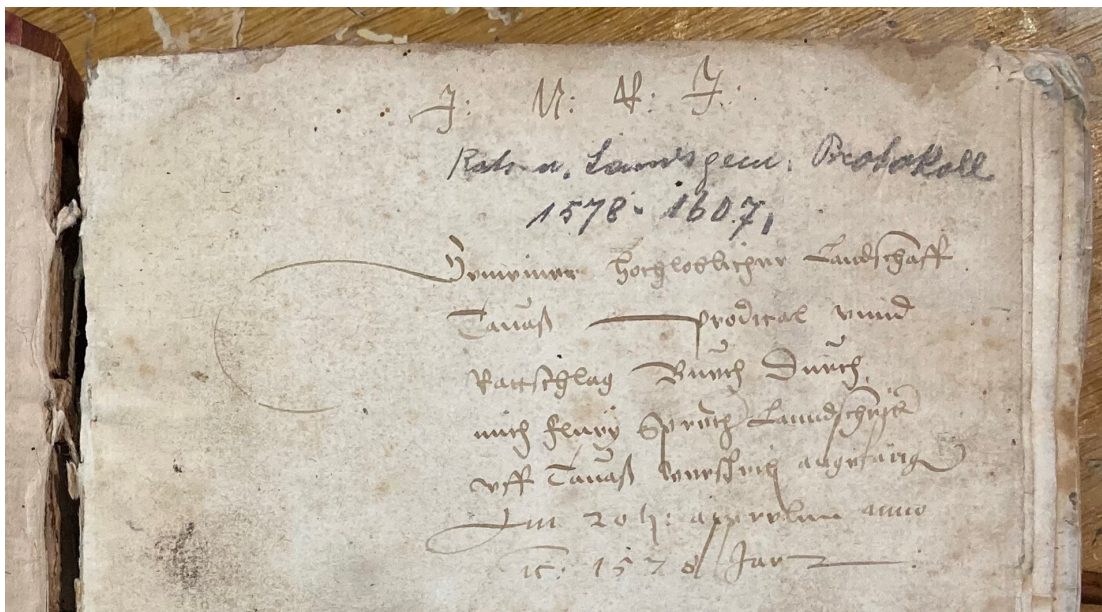 J: N: R: J:
Rats u. Landsgem. Protokoll
1578 - 1607,
Gemeiner Hochgloblicher Landschafft
Tauaß prodical vnnd
Rattschlag Buoch Durch
mich flury Sprech Landschryber
vff Tauaß angefangen
Im 20 appryllen anno
1578 Jar